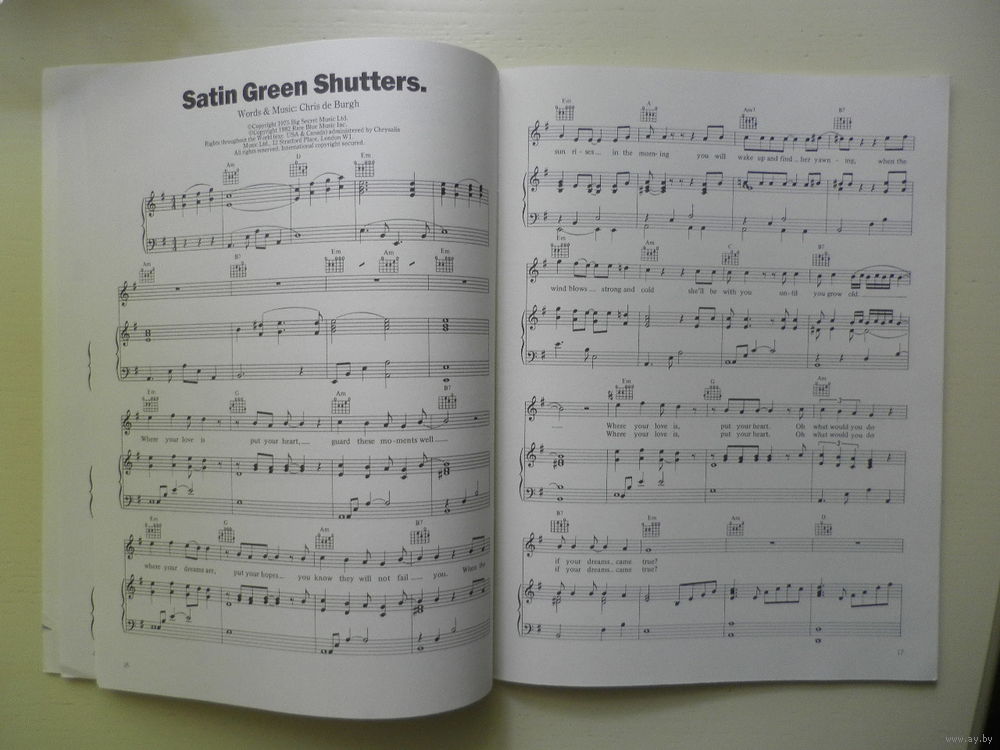 Satin Green Shutters.
Words & Music: Chris de Burgh
©Copyright 1975 Big Secret Music Ltd.
©Copyright 1982 Rare Blue Music Inc.
Rights throughout the World (exc. USA & Canada) administered by Chrysalis
Music Ltd., 12 Stratford Place, London W1.
All rights reserved. International copyright secured.
Am D Em
Am B7 Em Am Em
Em G Am B7
Where your love is put your heart, guard these mo-ments well
Em G Am B7
where your dreams are, put your hopes you know they will not fail you. When the
16
Em A Am7 B7
sun ri - ses in the morn-ing you will wake up and find her yawn - ing, when the
Em Am C B7
wind blows strong and cold she'll be with you un-til you grow old.
Em G Am
3
Where your love is, put your heart. Oh what would you do
Where your love is, put your heart. Oh what would you do
3
B7 Em Am D
if your dreams came true?
if your dreams came true?
17
www.ay.by